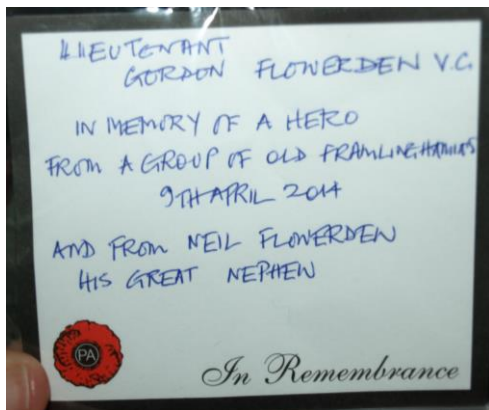 LIEUTENANT
GORDON FLOWERDEN V.C.
IN MEMORY OF A HERO
FROM A GROUP OF OLD FRAMLINGHAMIANS
9TH APRIL 2014
AND FROM NEIL FLOWERDEN
HIS GREAT NEPHEW
PA
In Remembrance